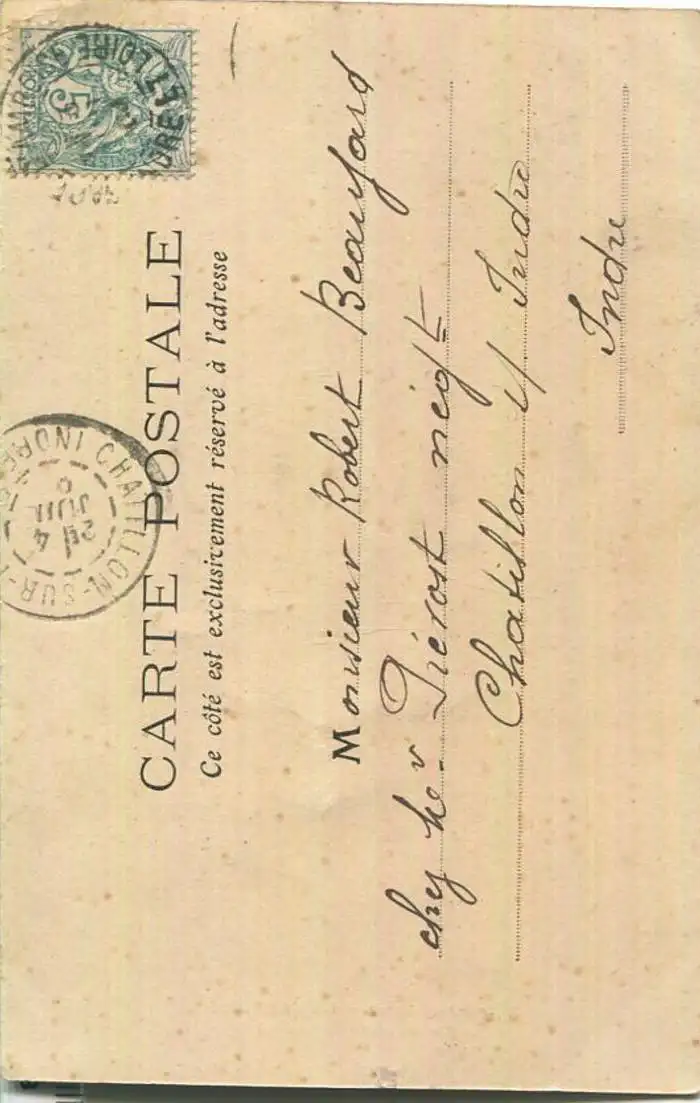 CARTE POSTALE
Ce côté est exclusivement réservé à l'adresse
Monsieur Robert Beaufard
chez Mr. Prévost négt
Chatillon s/ Indre
Indre
5
INDRE-ET-LOIRE
CHATILLON-SUR-INDRE
6
JUIL